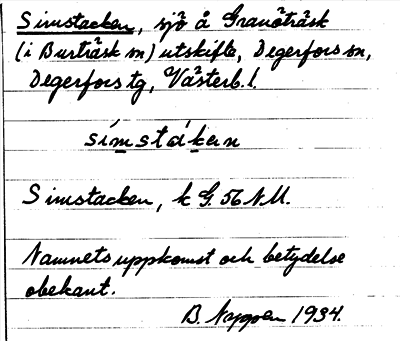 Simstacken, sjö å Granöträsk
(i Burträsk sn) utskifte, Degerfors sn,
Degerfors tg, Västerb. l.
simstákan
Simstacken, k G. 56 N.M.
Namnets uppkomst och betydelse
obekant.
B. 1934.